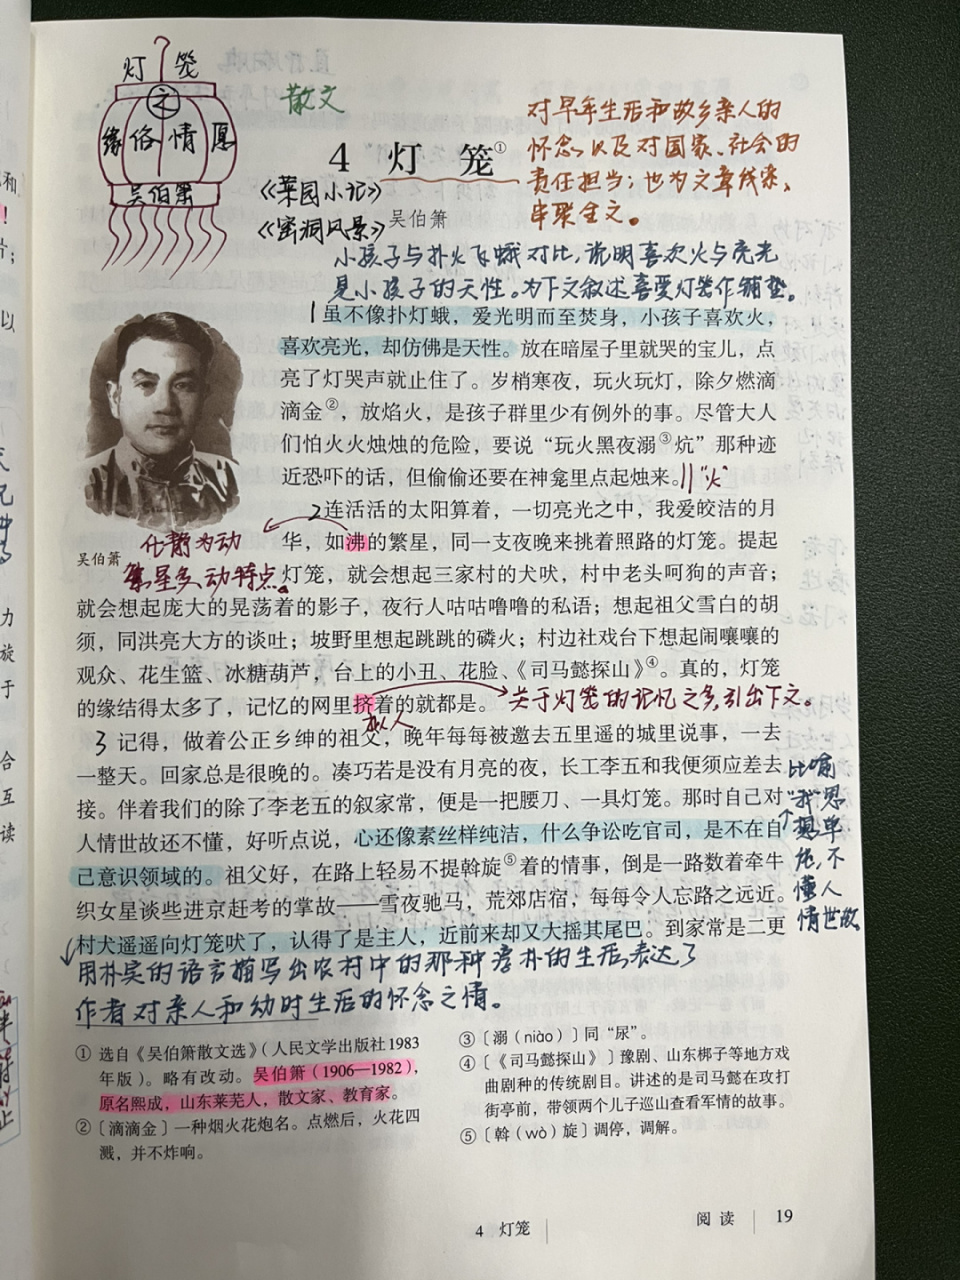 灯笼
之
缘俗情愿
吴伯箫
散文
4 灯笼①
《菜园小记》
《窑洞风景》
吴伯箫
对早年生活和故乡亲人的
怀念,以及对国家、社会的
责任担当;也为文章线索、
串联全文。
小孩子与扑火飞蛾对比,说明喜欢火与亮光
是小孩子的天性。为下文叙述喜爱灯笼作铺垫。
1虽不像扑灯蛾,爱光明而至焚身,小孩子喜欢火,
喜欢亮光,却仿佛是天性。放在暗屋子里就哭的宝儿,点
亮了灯哭声就止住了。岁梢寒夜,玩火玩灯,除夕燃滴
滴金②,放焰火,是孩子群里少有例外的事。尽管大人
们怕火火烛烛的危险,要说“玩火黑夜溺③炕”那种迹
近恐吓的话,但偷偷还要在神龛里点起烛来。‖“火”
2连活活的太阳算着,一切亮光之中,我爱皎洁的月
华,如沸的繁星,同一支夜晚来挑着照路的灯笼。提起
吴伯箫
化静为动
繁星多、动特点。
灯笼,就会想起三家村的犬吠,村中老头呵狗的声音;
就会想起庞大的晃荡着的影子,夜行人咕咕噜噜的私语;想起祖父雪白的胡
须,同洪亮大方的谈吐;坡野里想起跳跳的磷火;村边社戏台下想起闹嚷嚷的
观众、花生篮、冰糖葫芦,台上的小丑、花脸、《司马懿探山》④。真的,灯笼
的缘结得太多了,记忆的网里挤着的就都是。
关于灯笼的记忆之多,引出下文。
拟人
3 记得,做着公正乡绅的祖父,晚年每每被邀去五里遥的城里说事,一去
一整天。回家总是很晚的。凑巧若是没有月亮的夜,长工李五和我便须应差去
接。伴着我们的除了李老五的叙家常,便是一把腰刀、一具灯笼。那时自己对
人情世故还不懂,好听点说,心还像素丝样纯洁,什么争讼吃官司,是不在自
己意识领域的。祖父好,在路上轻易不提斡旋⑤着的情事,倒是一路数着牵牛
织女星谈些进京赶考的掌故——雪夜驰马,荒郊店宿,每每令人忘路之远近。
村犬遥遥向灯笼吠了,认得了是主人,近前来却又大摇其尾巴。到家常是二更
比喻
“我”思
想单
纯,不
懂人
情世故
用朴实的语言描写出农村中的那种淳朴的生活,表达了
作者对亲人和幼时生活的怀念之情。
① 选自《吴伯箫散文选》(人民文学出版社1983
年版)。略有改动。吴伯箫(1906—1982),
原名熙成,山东莱芜人,散文家、教育家。
② 〔滴滴金〕一种烟火花炮名。点燃后,火花四
溅,并不炸响。
③ 〔溺(niào)〕同“尿”。
④ 〔《司马懿探山》〕豫剧、山东梆子等地方戏
曲剧种的传统剧目。讲述的是司马懿在攻打
街亭前,带领两个儿子巡山查看军情的故事。
⑤ 〔斡(wò)旋〕调停,调解。
4 灯笼
阅读 19